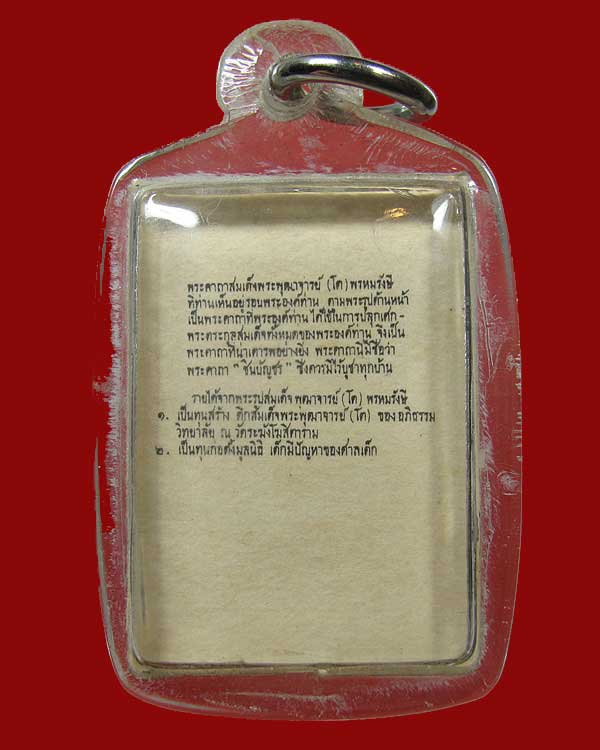 พระคาถาสมเด็จพระพุฒาจารย์ (โต) พรหมรังษี
ที่ท่านเห็นอยู่รอบพระองค์ท่าน ตามพระรูปด้านหน้า
เป็นพระคาถาที่พระองค์ท่านได้ใช้ในการปลุกเศก-
พระตระกูลสมเด็จทั้งหมดของพระองค์ท่าน จึงเป็น
พระคาถาที่น่าเคารพอย่างยิ่ง พระคาถานี้มีชื่อว่า
พระคาถา " ชินบัญชร " ซึ่งควรมีไว้บูชาทุกบ้าน
รายได้จากพระรูปสมเด็จ พุฒาจารย์ (โต) พรหมรังษี
๑. เป็นทุนสร้าง ตึกสมเด็จพระพุฒาจารย์ (โต) ของ อภิธรรม
วิทยาลัย ณ วัดระฆังโฆสิตาราม
๒. เป็นทุนก่อตั้งมูลนิธิ เด็กมีปัญหาของศาลเด็ก